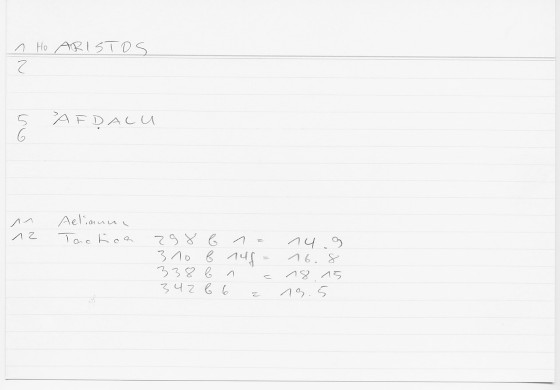 1 Ho ARISTOS
2
5 ʾAFḌALU
6
11 Aelianus
12 Tactica 298 b 1 = 14.9
310 b 14f = 16.8
338 b 1 = 18.15
342 b 6 = 19.5